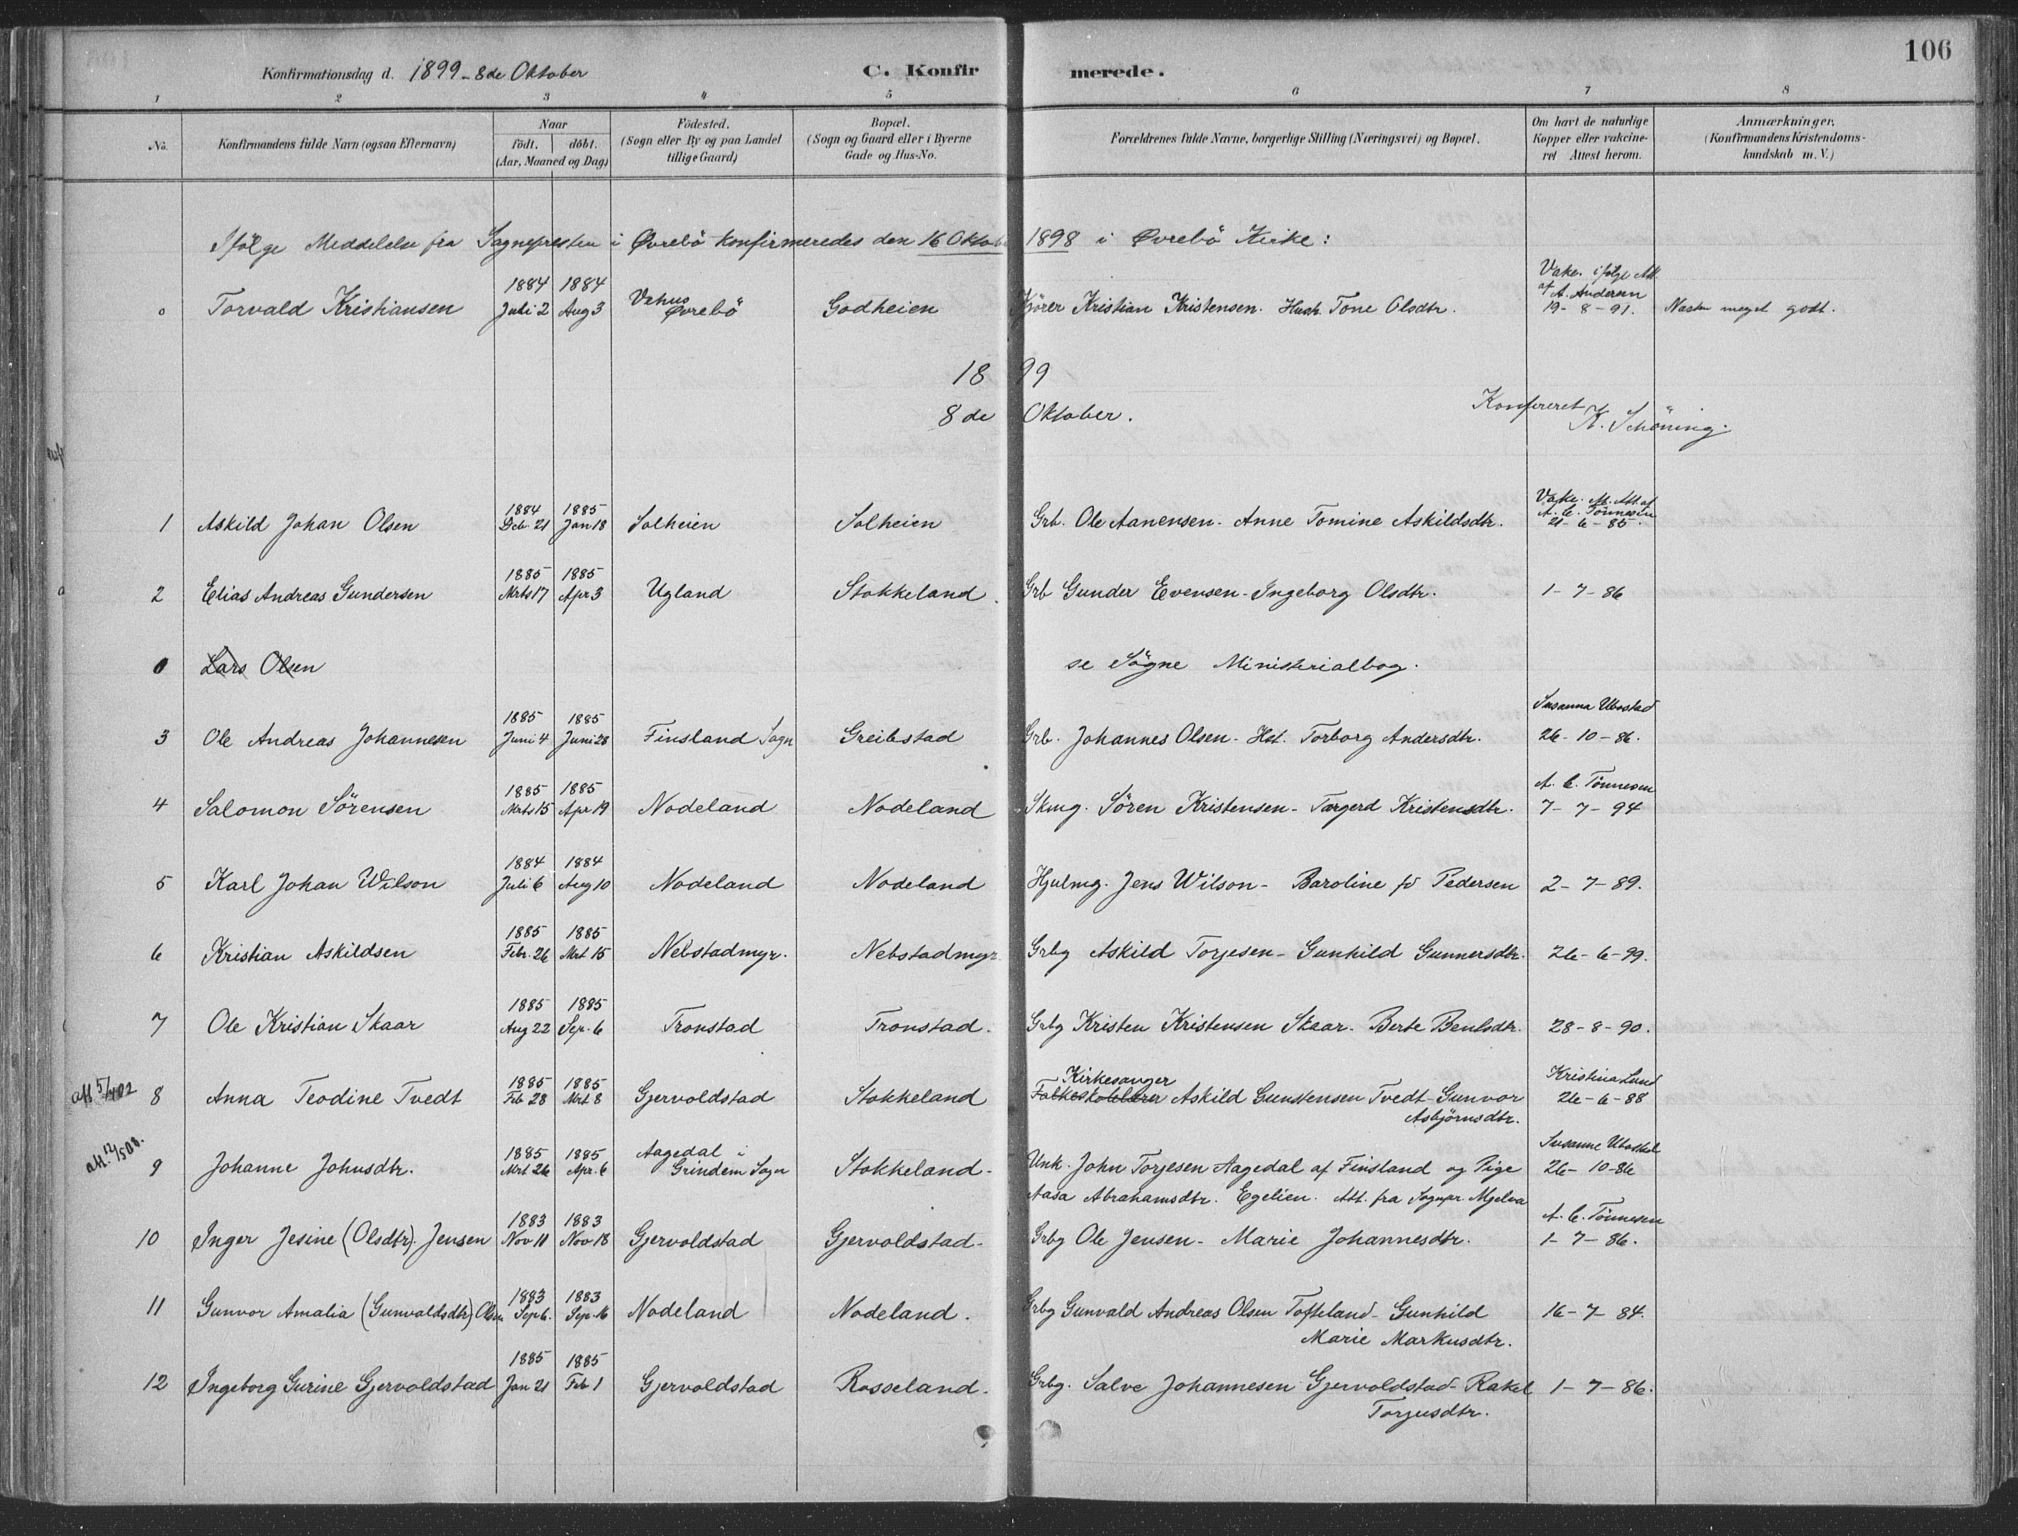 106
Konfirmationsdag d. 1899 - 8de Oktober C. Konfirmerede.
1 2 3 4 5 6 7 8
No. Konfirmandens fulde Navn (ogsaa Efternavn) Naar födt. döbt. (Aar, Maaned og Dag) Födested. (Sogn eller By og paa Landet tillige Gaard) Bopæl. (Sogn og Gaard eller i Byerne Gade og Hus-No. Forældrenes fulde Navne, borgerlige Stilling (Næringsvei) og Bopæl. Om havt de naturlige Kopper eller vakcineret Attest herom. Anmærkninger. (Konfirmandens Kristendomskundskab m. V.)
Ifölge Meddelelse fra Sognepresten i Øvrebö konfirmeredes den 16 Oktober 1898 i Øvrebö Kirke:
0 Torvald Kristiansen 1884 Juli 2 1884 Aug 3 Øvrebö Godheien Kjörer Kristian Kristensen. Hustr. Tone Olsdtr. Vakc. ifölge Att. af A. Andersen 19-8-91. Næsten meget godt.
1899
8de Oktober.
Konfereret K. Schöning.
1 Askild Johan Olsen 1884 Deb 21 1885 Jan 18 Solheien Solheien Grb. Ole Aanensen - Anne Tomine Askildsdtr. Vakc. Att. af A. C. Tönnesen 21-6-85.
2 Elias Andreas Gundersen 1885 Mrts 17 1885 Apr 3 Ugland Stokkeland Grb Gunder Evensen - Ingeborg Olsdtr. 1-7-86
0 Lars Olsen se Sögne Ministerialbog.
3 Ole Andreas Johannesen 1885 Juni 4 1885 Juni 28 Finsland Sogn Greibstad Grb. Johannes Olsen - Hst. Torborg Andersdtr. Susanna Ubostad 26-10-86.
4 Salomon Sörensen 1885 Mrts 15 1885 Apr 19 Nodeland Nodeland Skmg. Sören Kristensen - Torgerd Kristensdtr. A. C. Tönnesen 7-7-94
5 Karl Johan Wilson 1884 Juli 6 1884 Aug 10 Nodeland Nodeland Hjulmg. Jens Wilson - Baroline fd Pedersen 2-7-89.
6 Kristian Askildsen 1885 Febr. 26 1885 Mrt 15 Nebstadmyr. Nebstadmyr Grbg Askild Torjesen - Gunhild Gunnersdtr. 26-6-99.
7 Ole Kristian Skaar 1885 Aug 22 1885 Sep. 6 Tronstad Tronstad. Grbg Kristen Kristensen Skaar - Berte Bentsdtr. 28-8-90.
att 5/4 02 8 Anna Teodine Tvedt 1885 Feb 28 1885 Mrt 8 Gjervoldstad Stokkeland Kirkesanger Folkeskolelærer Askild Gunstensen Tvedt - Gunvor Asbjörnsdtr. Kristina Lund 26-6-88
att. 12/5 00. 9 Johanne Johnsdtr. 1885 Mrt 26 1885 Apr. 6 Aagedal i Grindem Sogn Stokkeland - Unk. John Torjesen Aagedal af Finsland og Pige
Aasa Abrahamsdtr. Egelien. Att. fra Sognpr. Mjelva Susanne Ubostad 26-10-86
10 Inger Jesine (Olsdtr). Jensen 1883 Nov 11 1883 Nov 18 Gjervoldstad Gjervoldstad - Grbg Ole Jensen - Marie Johannesdtr. A. C. Tönnesen 1-7-86.
11 Gunvor Amalia (Gunvaldsdtr) Olsen 1883 Sep 6. 1883 Sep. 16 Nodeland Nodeland. Grbg Gunvald Andreas Olsen Tofteland - Gunhild Marie Markusdtr. 16-7-84.
12 Ingeborg Gurine Gjervoldstad 1885 Jan 21 1885 Feb 1 Gjervoldstad Rosseland. Grbg. Salve Johannesen Gjervoldstad - Rakel Torjusdtr. 1-7-86.